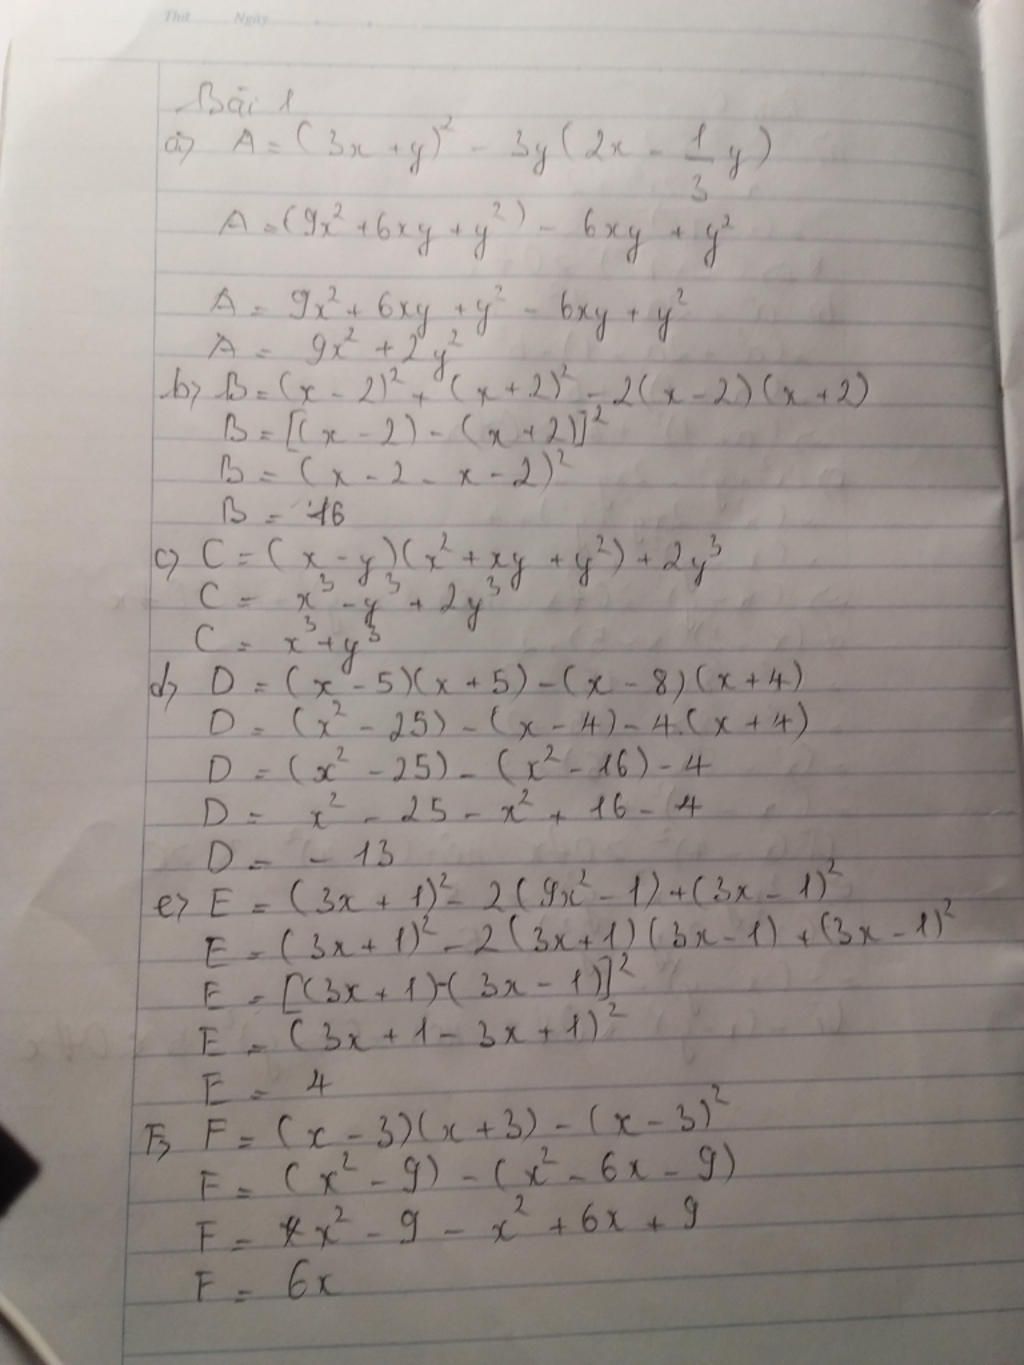 Thứ Ngày
Bài 1
a) A = (3x + y)² - 3y(2x - 1/3 y)
A = (9x² + 6xy + y²) - 6xy + y²
A = 9x² + 6xy + y² - 6xy + y²
A = 9x² + 2y²
b) B = (x - 2)² + (x + 2)² - 2(x - 2)(x + 2)
B = [(x - 2) - (x + 2)]²
B = (x - 2 - x - 2)²
B = 16
c) C = (x - y)(x² + xy + y²) + 2y³
C = x³ - y³ + 2y³
C = x³ + y³
d) D = (x - 5)(x + 5) - (x - 8)(x + 4)
D = (x² - 25) - (x - 4) - 4.(x + 4)
D = (x² - 25) - (x² - 16) - 4
D = x² - 25 - x² + 16 - 4
D = - 13
e) E = (3x + 1)² - 2(9x² - 1) + (3x - 1)²
E = (3x + 1)² - 2(3x + 1)(3x - 1) + (3x - 1)²
E = [(3x + 1) - (3x - 1)]²
E = (3x + 1 - 3x + 1)²
E = 4
F) F = (x - 3)(x + 3) - (x - 3)²
F = (x² - 9) - (x² - 6x - 9)
F = x² - 9 - x² + 6x + 9
F = 6x